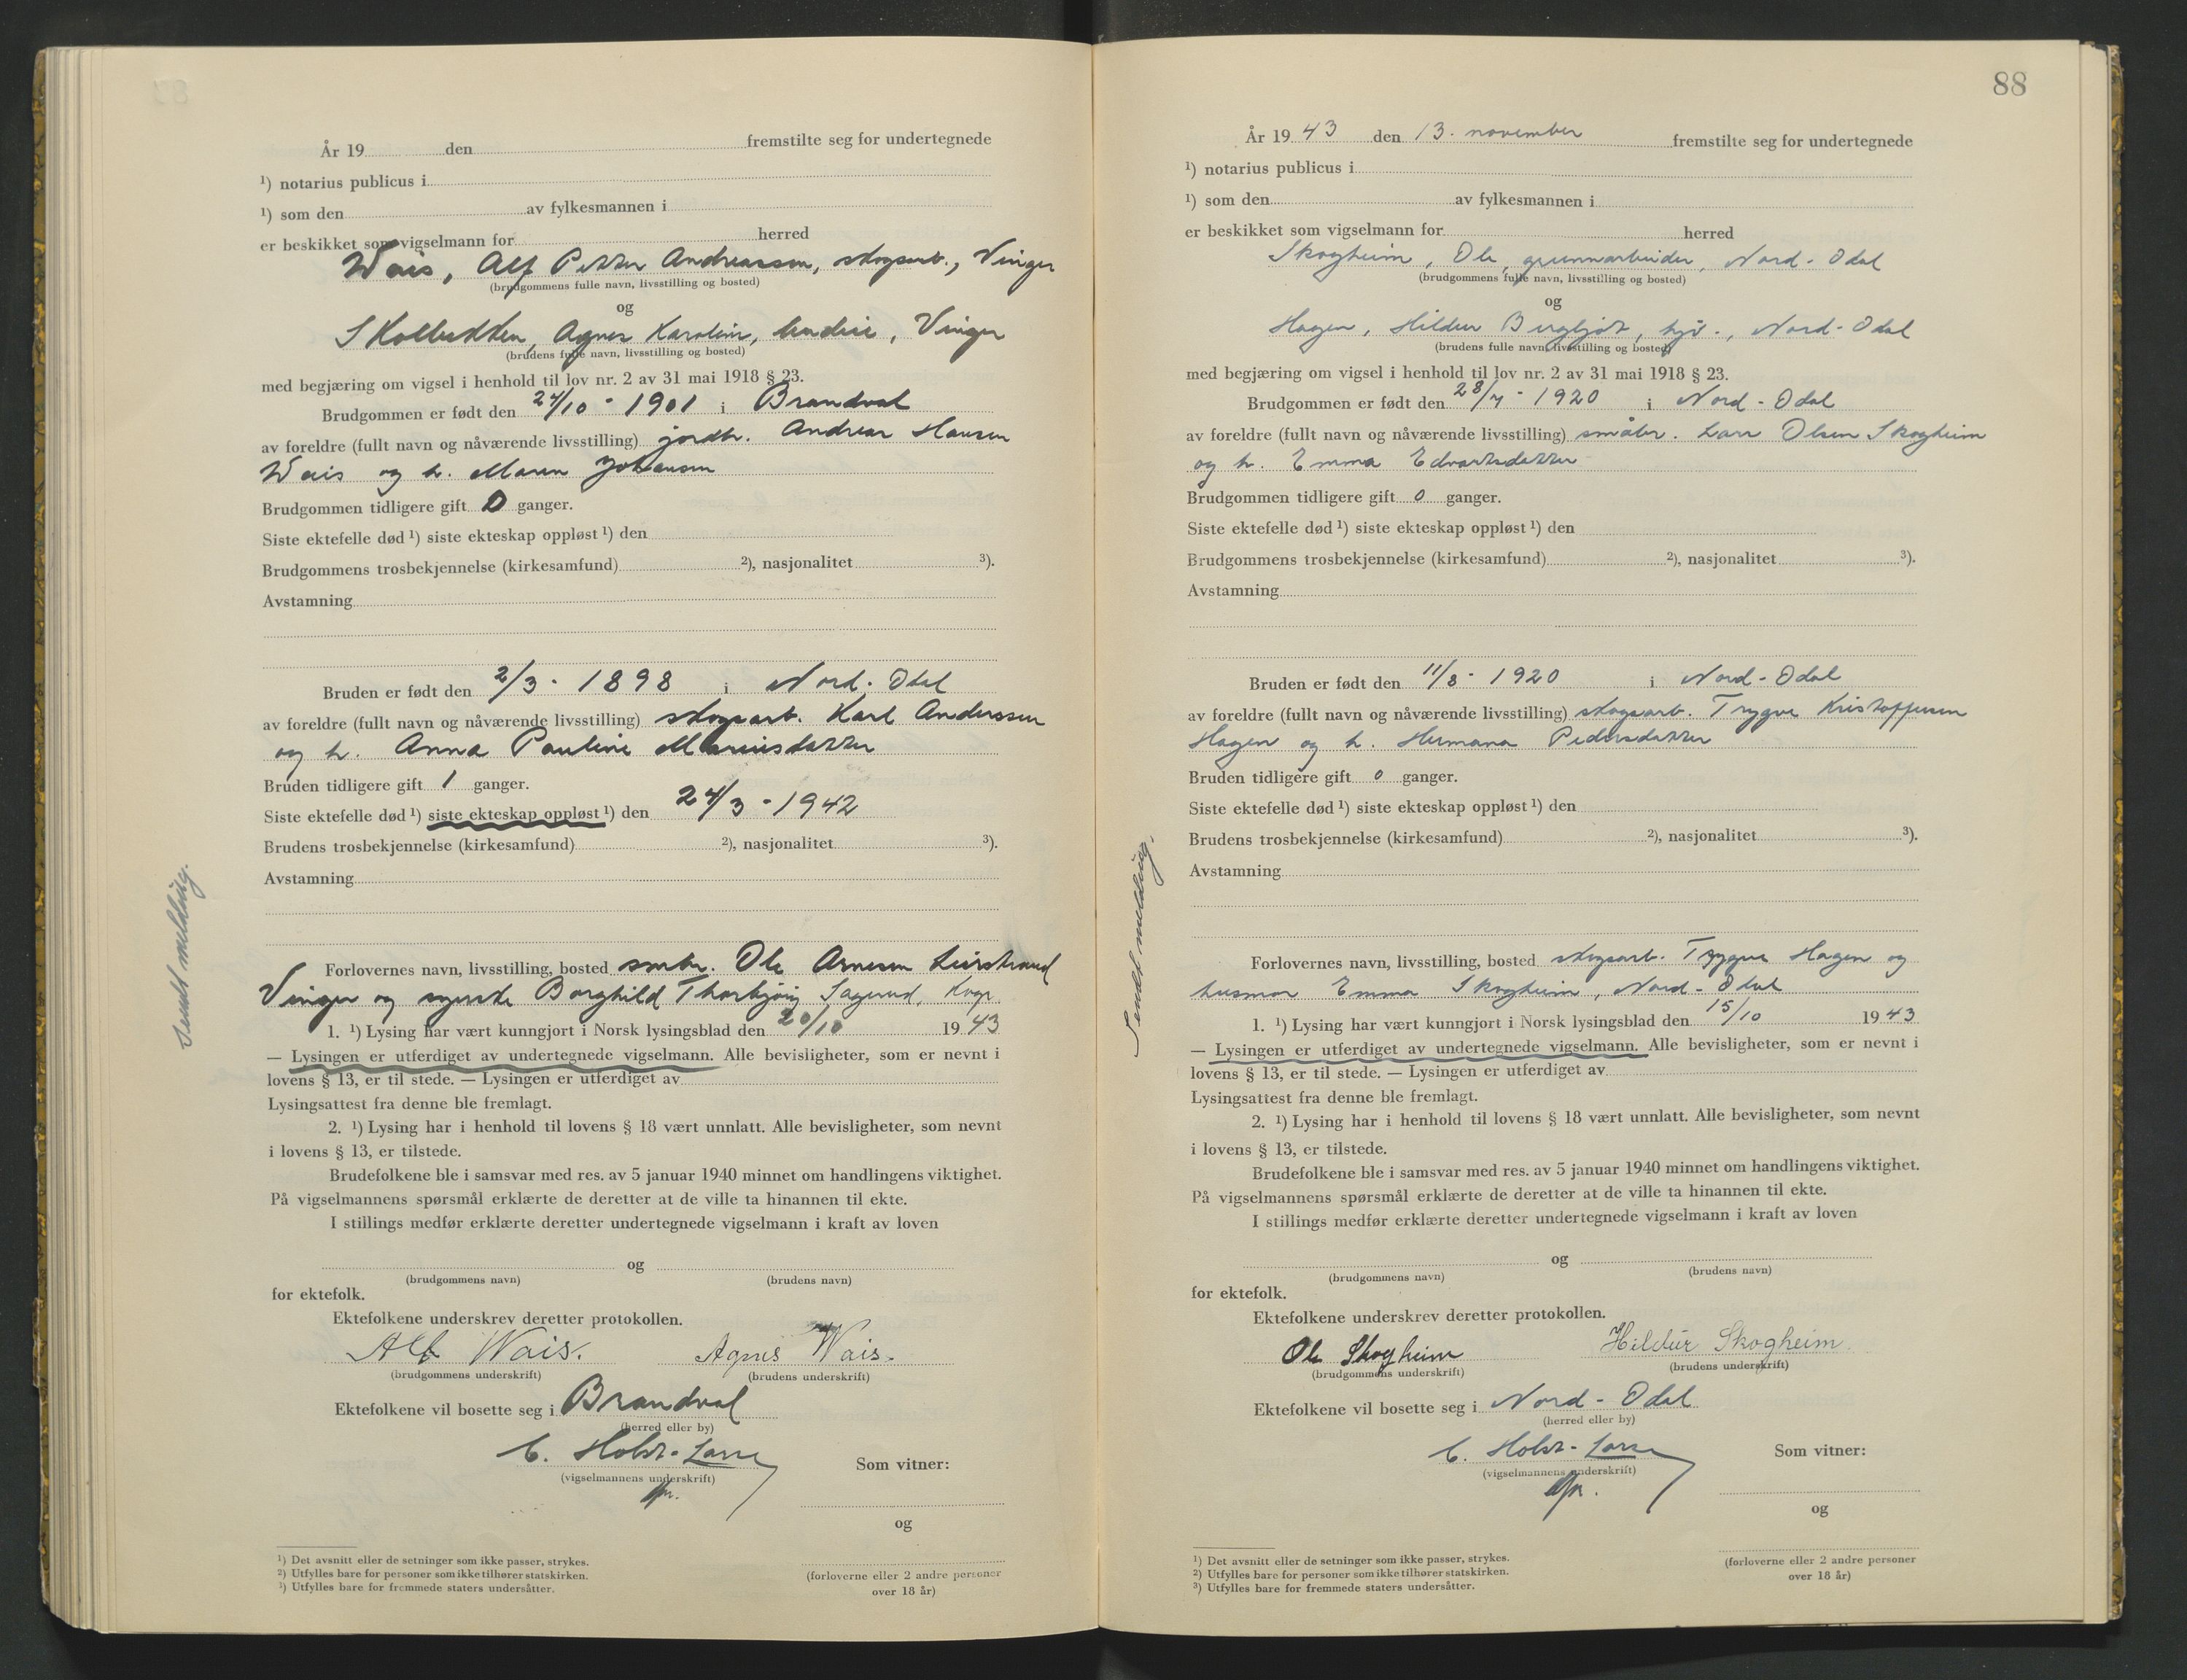 År 19 den fremstilte seg for undertegnede
¹) notarius publicus i
¹) som den av fylkesmannen i
er beskikket som vigselmann for herred
Wais, Alf Petter Andreassen, skogsarb., Vinger
(brudgommens fulle navn, livsstilling og bosted)
og
Skolbekken, Agnes Karoline, Vinger
(brudens fulle navn, livsstilling og bosted)
med begjæring om vigsel i henhold til lov nr. 2 av 31 mai 1918 § 23.
Brudgommen er født den 24/10 - 1901 i Brandval
av foreldre (fullt navn og nåværende livsstilling) jordbr. Andreas Hansen
Wais og h. Maren Johansen
Brudgommen tidligere gift 0 ganger.
Siste ektefelle død ¹) siste ekteskap oppløst ¹) den
Brudgommens trosbekjennelse (kirkesamfund) ²), nasjonalitet ³).
Avstamning
Bruden er født den 2/3 - 1898 i Nord-Odal
av foreldre (fullt navn og nåværende livsstilling) skogsarb. Karl Anderssen
og h. Anna Pauline Mariusdatter
Bruden tidligere gift 1 ganger.
Siste ektefelle død ¹) siste ekteskap oppløst ¹) den 24/3 - 1942
Brudens trosbekjennelse (kirkesamfund) ²), nasjonalitet ³).
Avstamning
Sendt melding.
Forlovernes navn, livsstilling, bosted småbr. Ole Arnesen
Vinger og syerske Borghild Thorbjørg Sagerud, Kvgr.
1. ¹) Lysing har vært kunngjort i Norsk lysingsblad den 20/10 1943
— Lysingen er utferdiget av undertegnede vigselmann. Alle bevisligheter, som er nevnt i
lovens § 13, er til stede. — Lysingen er utferdiget av
Lysingsattest fra denne ble fremlagt.
2. ¹) Lysing har i henhold til lovens § 18 vært unnlatt. Alle bevisligheter, som nevnt
i lovens § 13, er tilstede.
Brudefolkene ble i samsvar med res. av 5 januar 1940 minnet om handlingens viktighet.
På vigselmannens spørsmål erklærte de deretter at de ville ta hinannen til ekte.
I stillings medfør erklærte deretter undertegnede vigselmann i kraft av loven
og
(brudgommens navn) (brudens navn)
for ektefolk.
Ektefolkene underskrev deretter protokollen.
Alf Wais. Agnes Wais.
(brudgommens underskrift) (brudens underskrift)
Ektefolkene vil bosette seg i Brandval
(herred eller by)
C. Holst-Larsen
(vigselmannens underskrift)
Som vitner:
og
(forloverne eller 2 andre personer
over 18 år)
¹) Det avsnitt eller de setninger som ikke passer, strykes.
²) Utfylles bare for personer som ikke tilhører statskirken.
³) Utfylles bare for fremmede staters undersåtter.
88
År 1943 den 13. november fremstilte seg for undertegnede
¹) notarius publicus i
¹) som den av fylkesmannen i
er beskikket som vigselmann for herred
Skogheim, Ole, grunnarbeider, Nord-Odal
(brudgommens fulle navn, livsstilling og bosted)
og
Hagen, Hildur Bergljot, hjv., Nord-Odal
(brudens fulle navn, livsstilling og bosted)
med begjæring om vigsel i henhold til lov nr. 2 av 31 mai 1918 § 23.
Brudgommen er født den 28/7 - 1920 i Nord-Odal
av foreldre (fullt navn og nåværende livsstilling) småbr. Lars Olsen Skogheim
og h. Emma Edvartsdatter
Brudgommen tidligere gift 0 ganger.
Siste ektefelle død ¹) siste ekteskap oppløst ¹) den
Brudgommens trosbekjennelse (kirkesamfund) ²), nasjonalitet ³).
Avstamning
Bruden er født den 11/8 - 1920 i Nord-Odal
av foreldre (fullt navn og nåværende livsstilling) skogsarb. Trygve Kristoffersen
Hagen og h. Hermana Pedersdatter
Bruden tidligere gift 0 ganger.
Siste ektefelle død ¹) siste ekteskap oppløst ¹) den
Brudens trosbekjennelse (kirkesamfund) ²), nasjonalitet ³).
Avstamning
Sendt melding.
Forlovernes navn, livsstilling, bosted skogsarb. Trygve Hagen og
husmor Emma Skogheim, Nord-Odal
1. ¹) Lysing har vært kunngjort i Norsk lysingsblad den 15/10 1943
— Lysingen er utferdiget av undertegnede vigselmann. Alle bevisligheter, som er nevnt i
lovens § 13, er til stede. — Lysingen er utferdiget av
Lysingsattest fra denne ble fremlagt.
2. ¹) Lysing har i henhold til lovens § 18 vært unnlatt. Alle bevisligheter, som nevnt
i lovens § 13, er tilstede.
Brudefolkene ble i samsvar med res. av 5 januar 1940 minnet om handlingens viktighet.
På vigselmannens spørsmål erklærte de deretter at de ville ta hinannen til ekte.
I stillings medfør erklærte deretter undertegnede vigselmann i kraft av loven
og
(brudgommens navn) (brudens navn)
for ektefolk.
Ektefolkene underskrev deretter protokollen.
Ole Skogheim Hildur Skogheim.
(brudgommens underskrift) (brudens underskrift)
Ektefolkene vil bosette seg i Nord-Odal
(herred eller by)
C. Holst-Larsen
(vigselmannens underskrift)
Som vitner:
og
(forloverne eller 2 andre personer
over 18 år)
¹) Det avsnitt eller de setninger som ikke passer, strykes.
²) Utfylles bare for personer som ikke tilhører statskirken.
³) Utfylles bare for fremmede staters undersåtter.